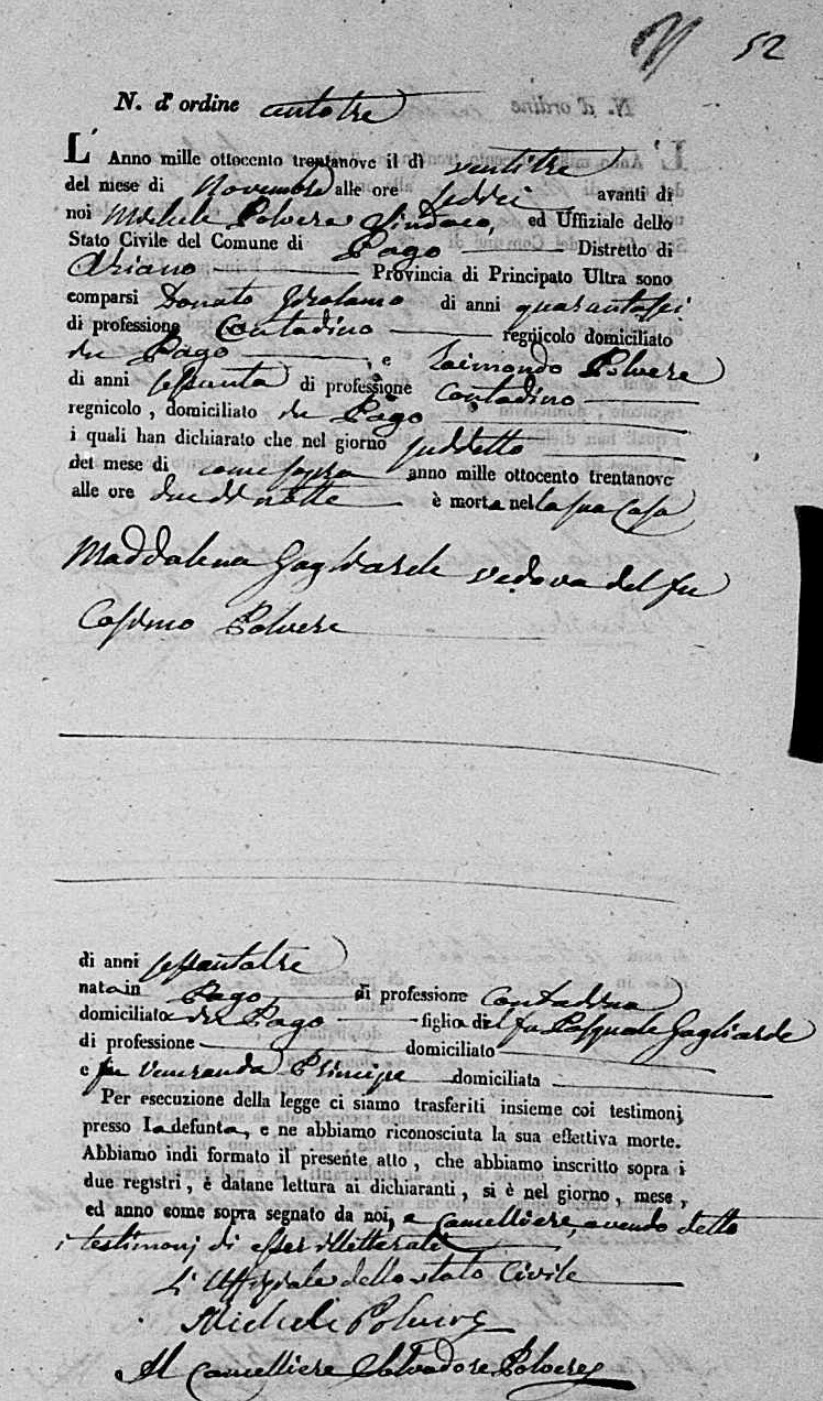 52
N. d'ordine centotre
L' Anno mille ottocento trentanove il dì ventitre
del mese di Novembre alle ore sedici avanti di
noi Michele Polvere Sindaco, ed Uffiziale dello
Stato Civile del Comune di Pago Distretto di
Ariano Provincia di Principato Ultra sono
comparsi Donato Girolamo di anni quarantasei
di professione Contadino regnicolo domiciliato
in Pago, e Raimondo Polvere
di anni sessanta di professione Contadino
regnicolo, domiciliato in Pago
i quali han dichiarato che nel giorno suddetto
del mese di come sopra anno mille ottocento trentanove
alle ore due di notte è morta nella sua Casa
Maddalena Gagliarde vedova del fu
Cosimo Polvere
di anni sessantatre
nata in Pago, di professione Contadina
domiciliata in Pago figlia del fu Pasquale Gagliarde
di professione domiciliato
e fu Veneranda Principe domiciliata
Per esecuzione della legge ci siamo trasferiti insieme coi testimonj
presso la defunta, e ne abbiamo riconosciuta la sua effettiva morte.
Abbiamo indi formato il presente atto, che abbiamo inscritto sopra i
due registri, è datane lettura ai dichiaranti, si è nel giorno, mese,
ed anno come sopra segnato da noi, e Cancelliere, avendo detto
i testimonj di esser illetterati
L'Uffiziale dello stato Civile
Michele Polvere
Il Cancelliere Salvadore Polvere